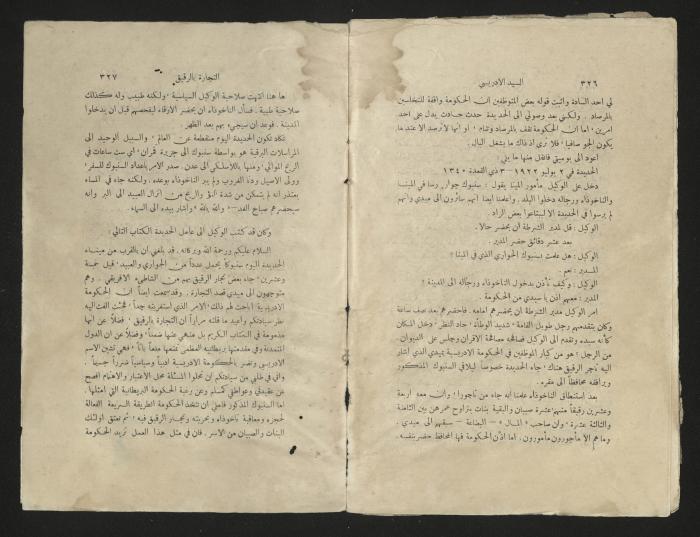 ٣٢٦ السيد الادريسي
لي احد السادة واثبت قوله بعض المتوظفين ان الحكومة واقفة للنخاسين
بالمرصاد . ولكني بعد وصولي الى الحديدة حدث حادث يدل على احد
امرين ، اما ان الحكومة تقف بالمرصاد وتنام ، او انها لا ترصد الا عند ما
يكون الجو صافياً ، فلا ترى اذ ذاك ما يشغل البال .
اعود الى يوميتي فانقل منها ما يلي :
الحديدة في ٢ يوليو ١٩٢٢ – ٣ ذي القعدة ١٣٤٠
دخل على الوكيل مأمور المينا يقول : سنبوك جوارٍ رسا في المينا
والناخوذاء ورجاله دخلوا البلد . واعلمنا ايضاً انهم سائرون الى ميدي وانهم
لم يرسوا في الحديدة الا ليبتاعوا بعض الزاد
الوكيل : قل لمدير الشرطة ان يحضر حالا .
بعد عشر دقائق حضر المدير .
الوكيل : هل علمت بسنبوك الجواري الذي في المينا ؟
المدير : نعم .
الوكيل : وكيف تأذن بدخول الناخوذاء ورجاله الى المدينة ؟
المدير : معهم اذن يا سيدي من الحكومة .
امر الوكيل مدير الشرطة ان يحضرهم امامه . فاحضرهم بعد نصف ساعة
وكان يتقدمهم رجل طويل القامة ، شديد الوطأة ، حاد النظر ، دخل المكان
كأنه سيده وتقدم الى الوكيل فصافحه مصافحة الاقران وجلس على الديوان .
من الرجل ؟ هو من كبار الموظفين في الحكومة الادريسية بميدي الذي اشار
اليه تاجر الرقيق هناك ، جاء الحديدة خصوصاً ليلاقي السنبوك المذكور
ويرافقه محافظاً الى مقره .
بعد استنطاق الناخوذاء علمنا انه جاء من تاجورا ، وان معه اربعة
وعشرين رقيقاً منهم عشرة صبيان والبقية بنات يتراوح عمرهن بين الثامنة
والثالثة عشرة ، وان صاحب « المال » – البضاعة – سبقهم الى ميدي .
وما هم الا مأجورون مأمورون . اما اذن الحكومة فها المحافظ حضر بنفسه .
التجارة بالرقيق ٣٢٧
ها هنا انتهت صلاحية الوكيل السياسية ، ولكنه طبيب وله كذلك
صلاحية طبية . فسأل الناخوذاء ان يحضر الارقاء ليفحصهم قبل ان يدخلوا
المدينة . فوعد ان سيجيء بهم بعد الظهر .
تكاد تكون الحديدة اليوم منقطعة عن العالم ، والسبيل الوحيد الى
المراسلات البرقية هو بواسطة سنبوك الى جزيرة قمران ، اي ست ساعات في
الريح الموالي ، ومنها باللاسلكي الى عدن . صدر الامر باعداد السنبوك للسفر ،
وولى الاصيل ودنا الغروب ولم يبر الناخوذاء بوعده . ولكنه جاء في المساء
يعتذر انه لم يتمكن من شدة النوّ والريح من انزال العبيد الى البر وانه
سيحضرهم صباح الغد – والله بالله ، واشار بيده الى السماء .
وكان قد كتب الوكيل الى عامل الحديدة الكتاب التالي :
السلام عليكم ورحمة الله وبركاته . قد بلغني ان بالقرب من ميناء
الحديدة اليوم سنبوكاً يحمل عدداً من الجواري والعبيد ، قيل خمسة
وعشرين ، جاء بعض تجار الرقيق بهم من الشاطيء الافريقي . وهم
متوجهون الى ميدي قصد التجارة . وقد سمعت ايضاً ان الحكومة
الادريسية اباحت لهم ذلك ، الامر الذي استغربته جداً ، فجئت الفت اليه
نظر سيادتكم واعيد ما قلته مراراً ان التجارة بالرقيق ، فضلاً عن انها
مذمومة في الكتاب الكريم بل منهي عنها ضمناً ، وفضلاً عن ان الدول
المتمدنة وفي مقدمتها بريطانيه العظمى تمنعها منعاً باتاً ، فهي تشين الاسم
الادريسي وتضر بالحكومة الادريسية ادبياً وسياسياً ضرراً جسيماً .
واني في ظلي من سيادتكم ان تحلوا المسألة محل الاعتبار والاهتمام افصح
عن عقيدتي وعواطفي كمسلم وعن رغبة الحكومة البريطانية التي امثلها .
اما السنبوك المذكور فآمل ان تتخذ الحكومة الطريقة السريعة الفعالة
لحجزه ومعاقبة ناخوذاء وبحريته وتجار الرقيق فيه ، ثم تعتق اولئك
البنات والصبيان من الاسر . فان في مثل هذا العمل تزيد الحكومة